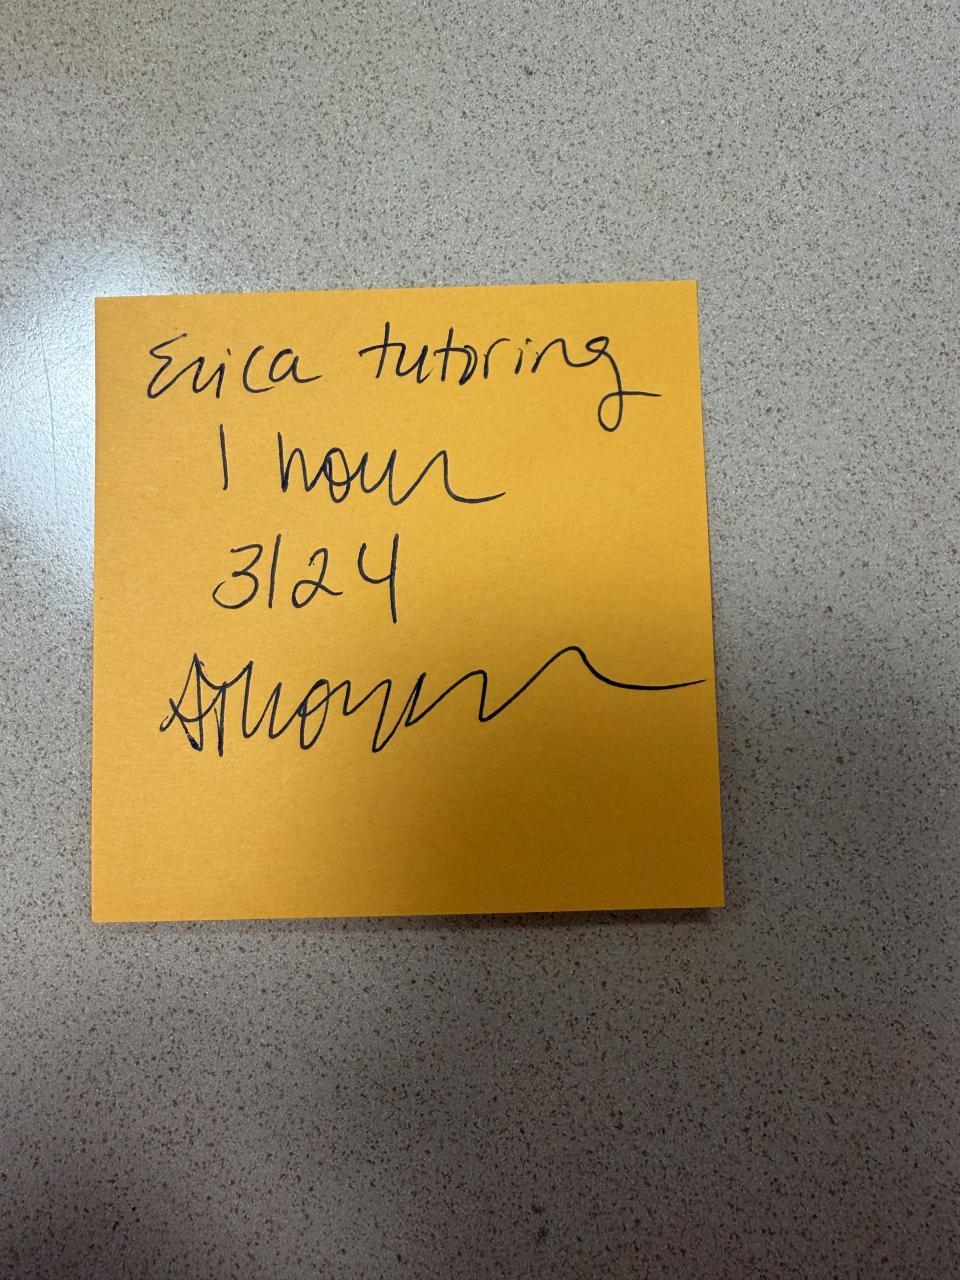 Erica tutoring
1 hour
3/24